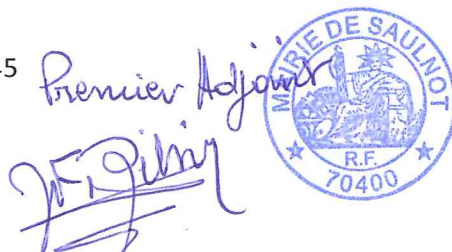 5
Premier Adjoint
MAIRIE DE SAULNOT
R.F.
70400